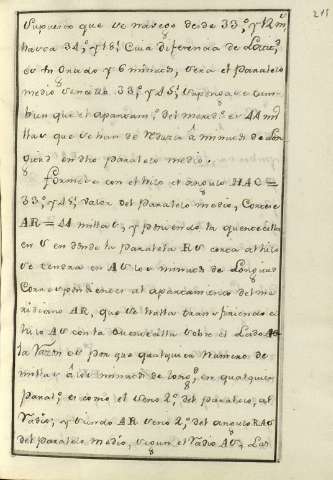 215
Supuesto que se navego desde 33°, y 12 m
hasta 34°, y 18'. Cuia diferencia de Latitud
es un Grado y 6 minutos, sera el paralelo
medio
33°, y 45'. Supongase tam
bien que el apartam.to del merid.o es 44 mi
llas que se han de reducir â minutos de Lon
gitud en dho paralelo medio.
Formese con el hilo el angulo HAC =
33°, y 45', valor del paralelo medio, Cortese
AR = 44 millas, y poniendo la quenecilla
en V en donde la paralela RV corta al hilo
se tendra en AV los minutos de Longitud
Correspondientes al apartamiento del me
ridiano AR, que se hallaran
el
hilo AV con la quenecilla sobre el Lado AB
la razon es por que qualquier numero de
millas â los minutos de Long.d en qualquier
paral.o es como el seno 2.o del paralelo, al
radio, y siendo AR seno 2.o del angulo RAV
del paralelo medio, segun el radio AV, las